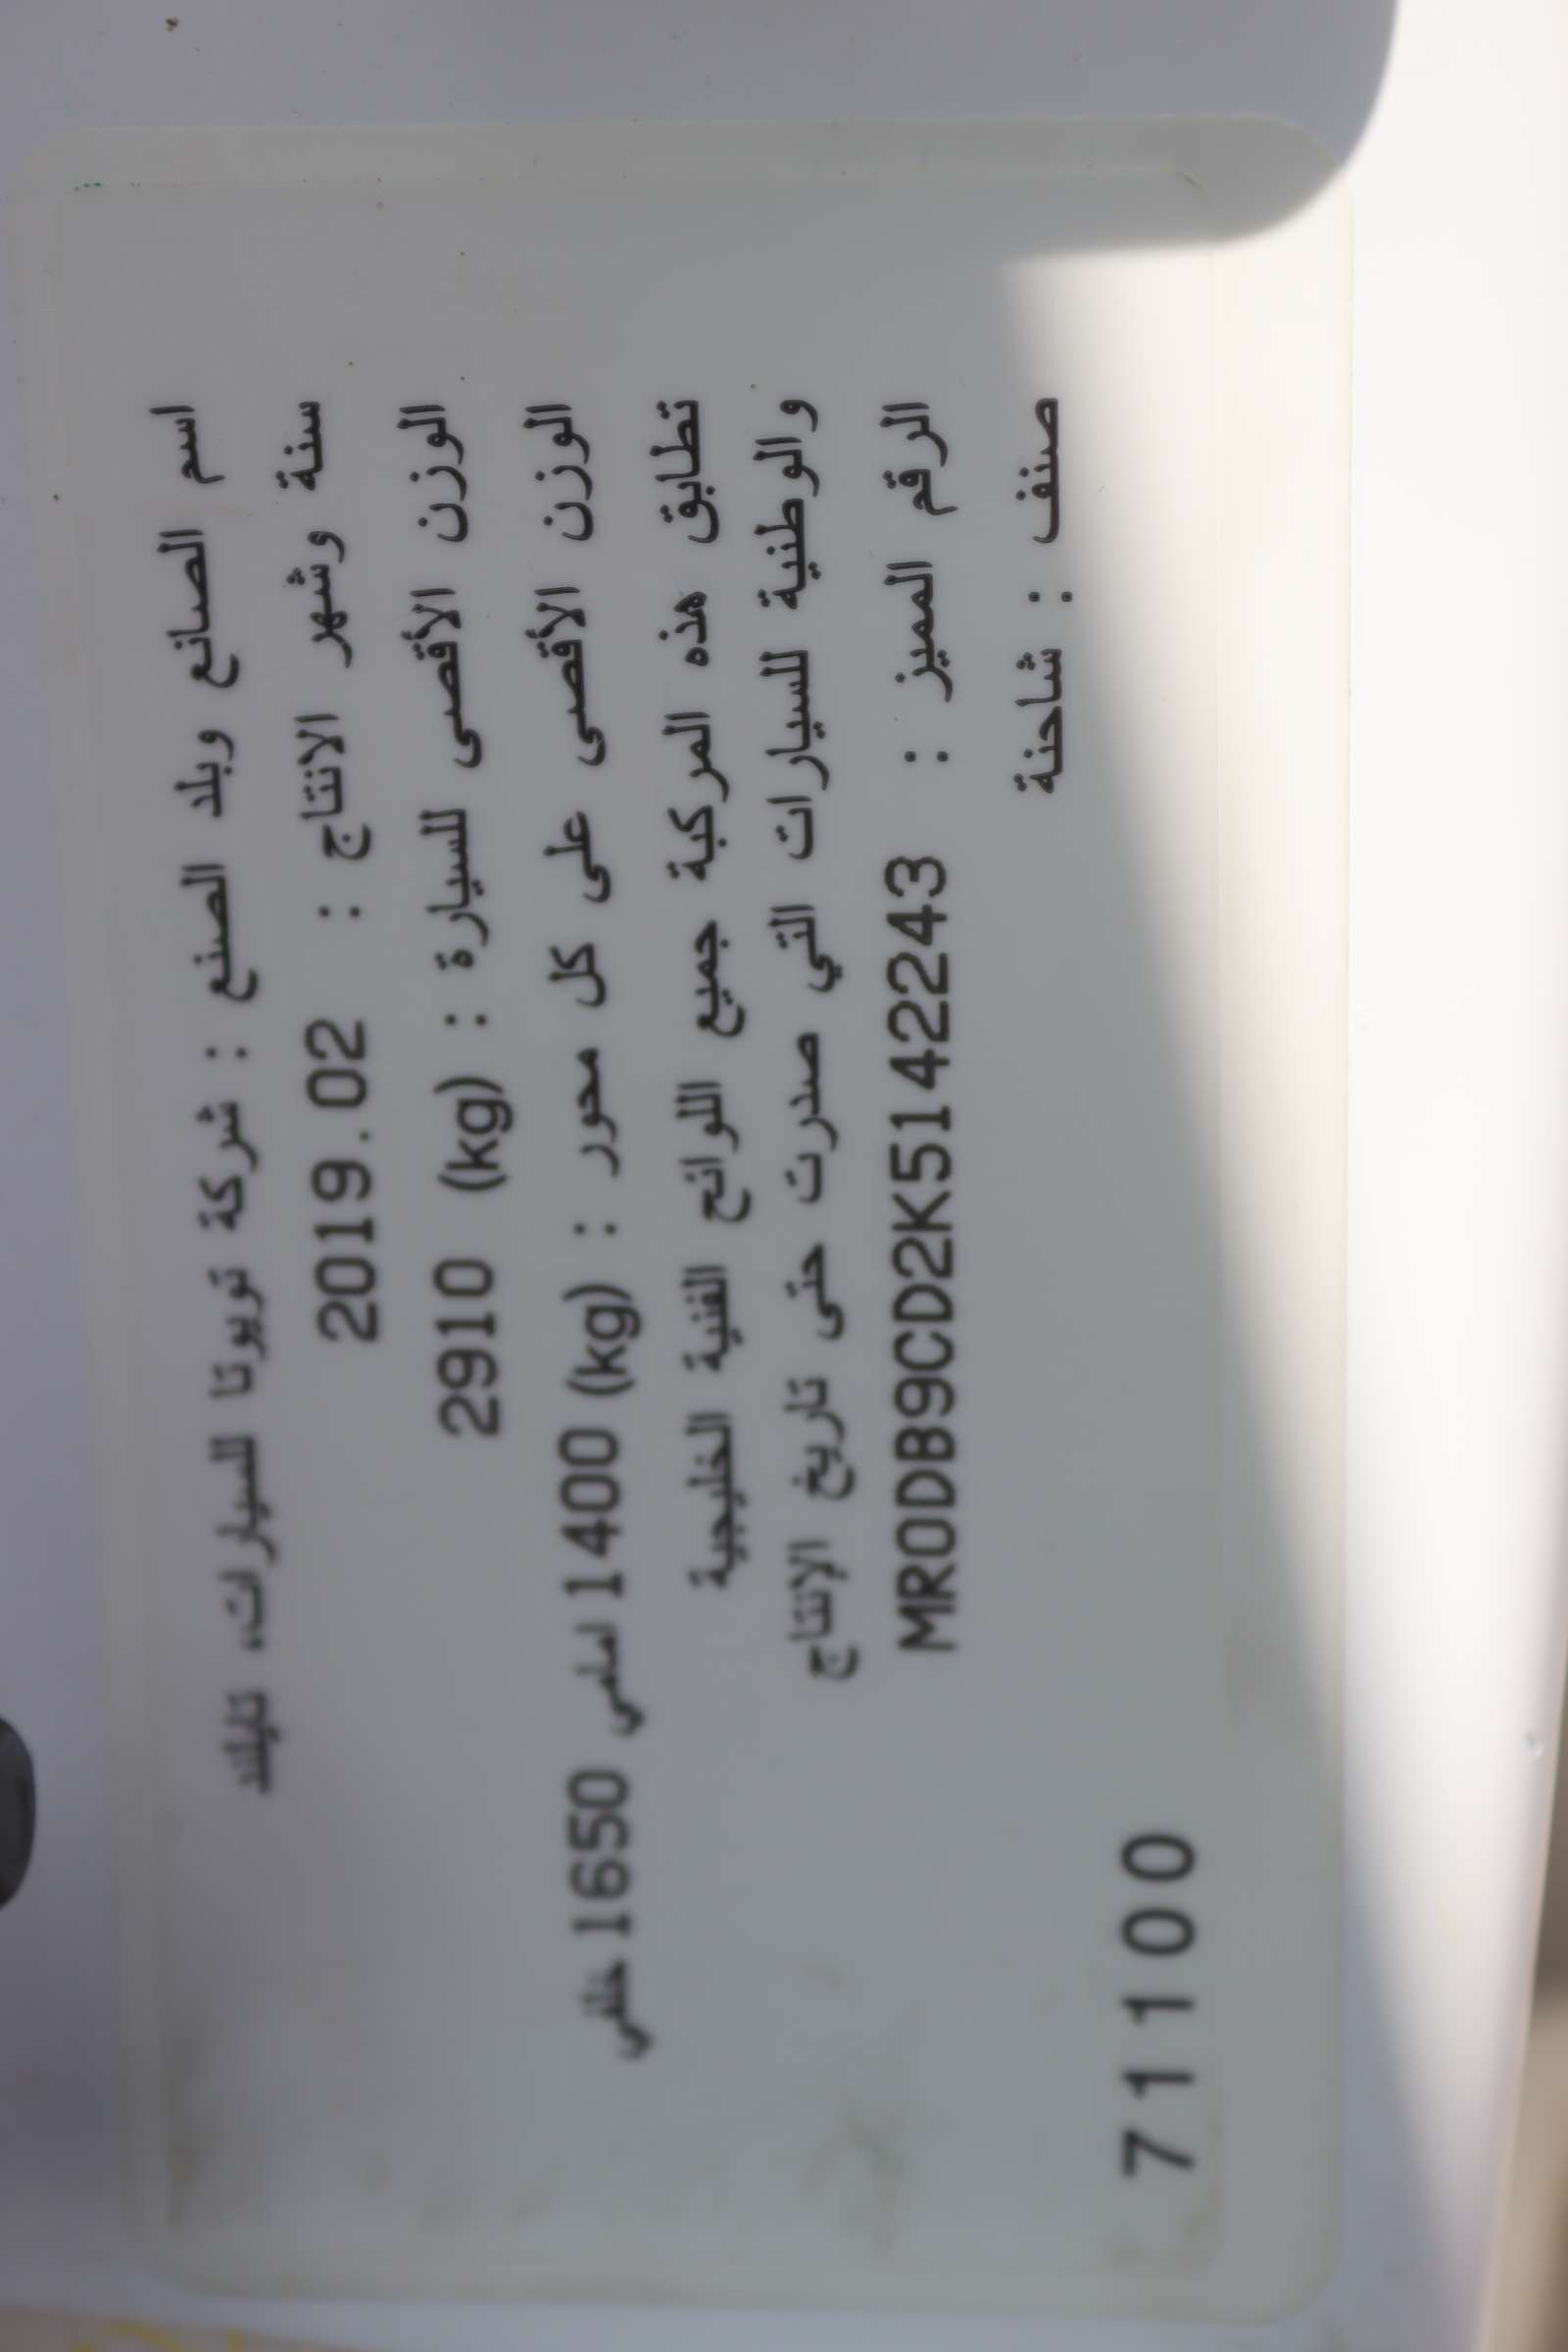 اسم الصانع وبلد الصنع : شركة تويوتا للسيارات، تايلند
سنة وشهر الانتاج : 2019.02
الوزن الأقصى للسيارة : (kg) 2910
الوزن الأقصى على كل محور : (kg) 1400 امامي 1650 خلفي
تطابق هذه المركبة جميع اللوائح الفنية الخليجية
والوطنية للسيارات التي صدرت حتى تاريخ الإنتاج
الرقم المميز : MR0DB9CD2K5142243
صنف : شاحنة
71100